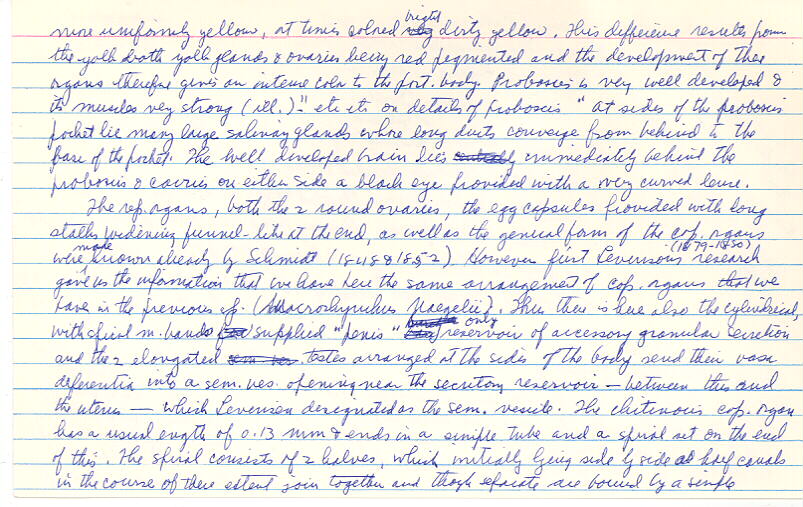 more uniformly yellow, at times colored bright dirty yellow. This difference results from
the yolk both yolk glands & ovaries being red pigmented and the development of these
organs therefore gives an intense color to the post. body. Proboscis is very well developed &
its muscles very strong (ill.)." etc etc on details of proboscis " At sides of the proboscis
pocket lie many large salivary glands whose long ducts converge from behind to the
base of the pocket. The well developed brain lies immediately behind the
proboscis & carries on either side a black eye provided with a very curved lense.
The rep. organs, both the 2 round ovaries, the egg capsules provided with long
stalks widening funnel-like at the end, as well as the general form of the cop. organs
were made known already by Schmidt (1848 & 1852). However first Levinsens (1879-1880) research
gave us the information that we have here the same arrangement of cop. organs that we
have in the previous sp. (Macrorhynchus Naegelii). Thus there is here also the cylindrical,
with spiral m. bands supplied "penis" only reservoir of accessory granular secretion
and the 2 elongated testes arranged at the sides of the body send their vasa
deferentia into a sem. ves. opening near the secretory reservoir — between this and
the uterus — which Levinsen designated as the sem. vesicle. The chitinous cop. organ
has a usual length of 0.13 mm & ends in a simple tube and a spiral set on the end
of this. The spiral consists of 2 halves, which initially lying side by side as half canals
in the course of their extent join together and though separate are bound by a simple